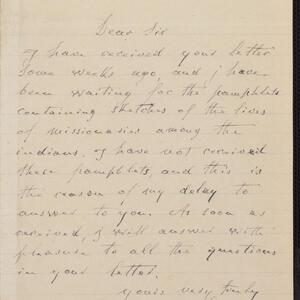 Dear Sir
I have received your letter
some weeks ago, and I have
been waiting for the pamphlets
containing sketches of the lives
of missionaries among the
indians. I have not received
these pamphlets, and this is
the reason of my delay to
answer to you. As soon as
received, I will answer with
pleasure to all the questions
in your letter.
Yours very truly